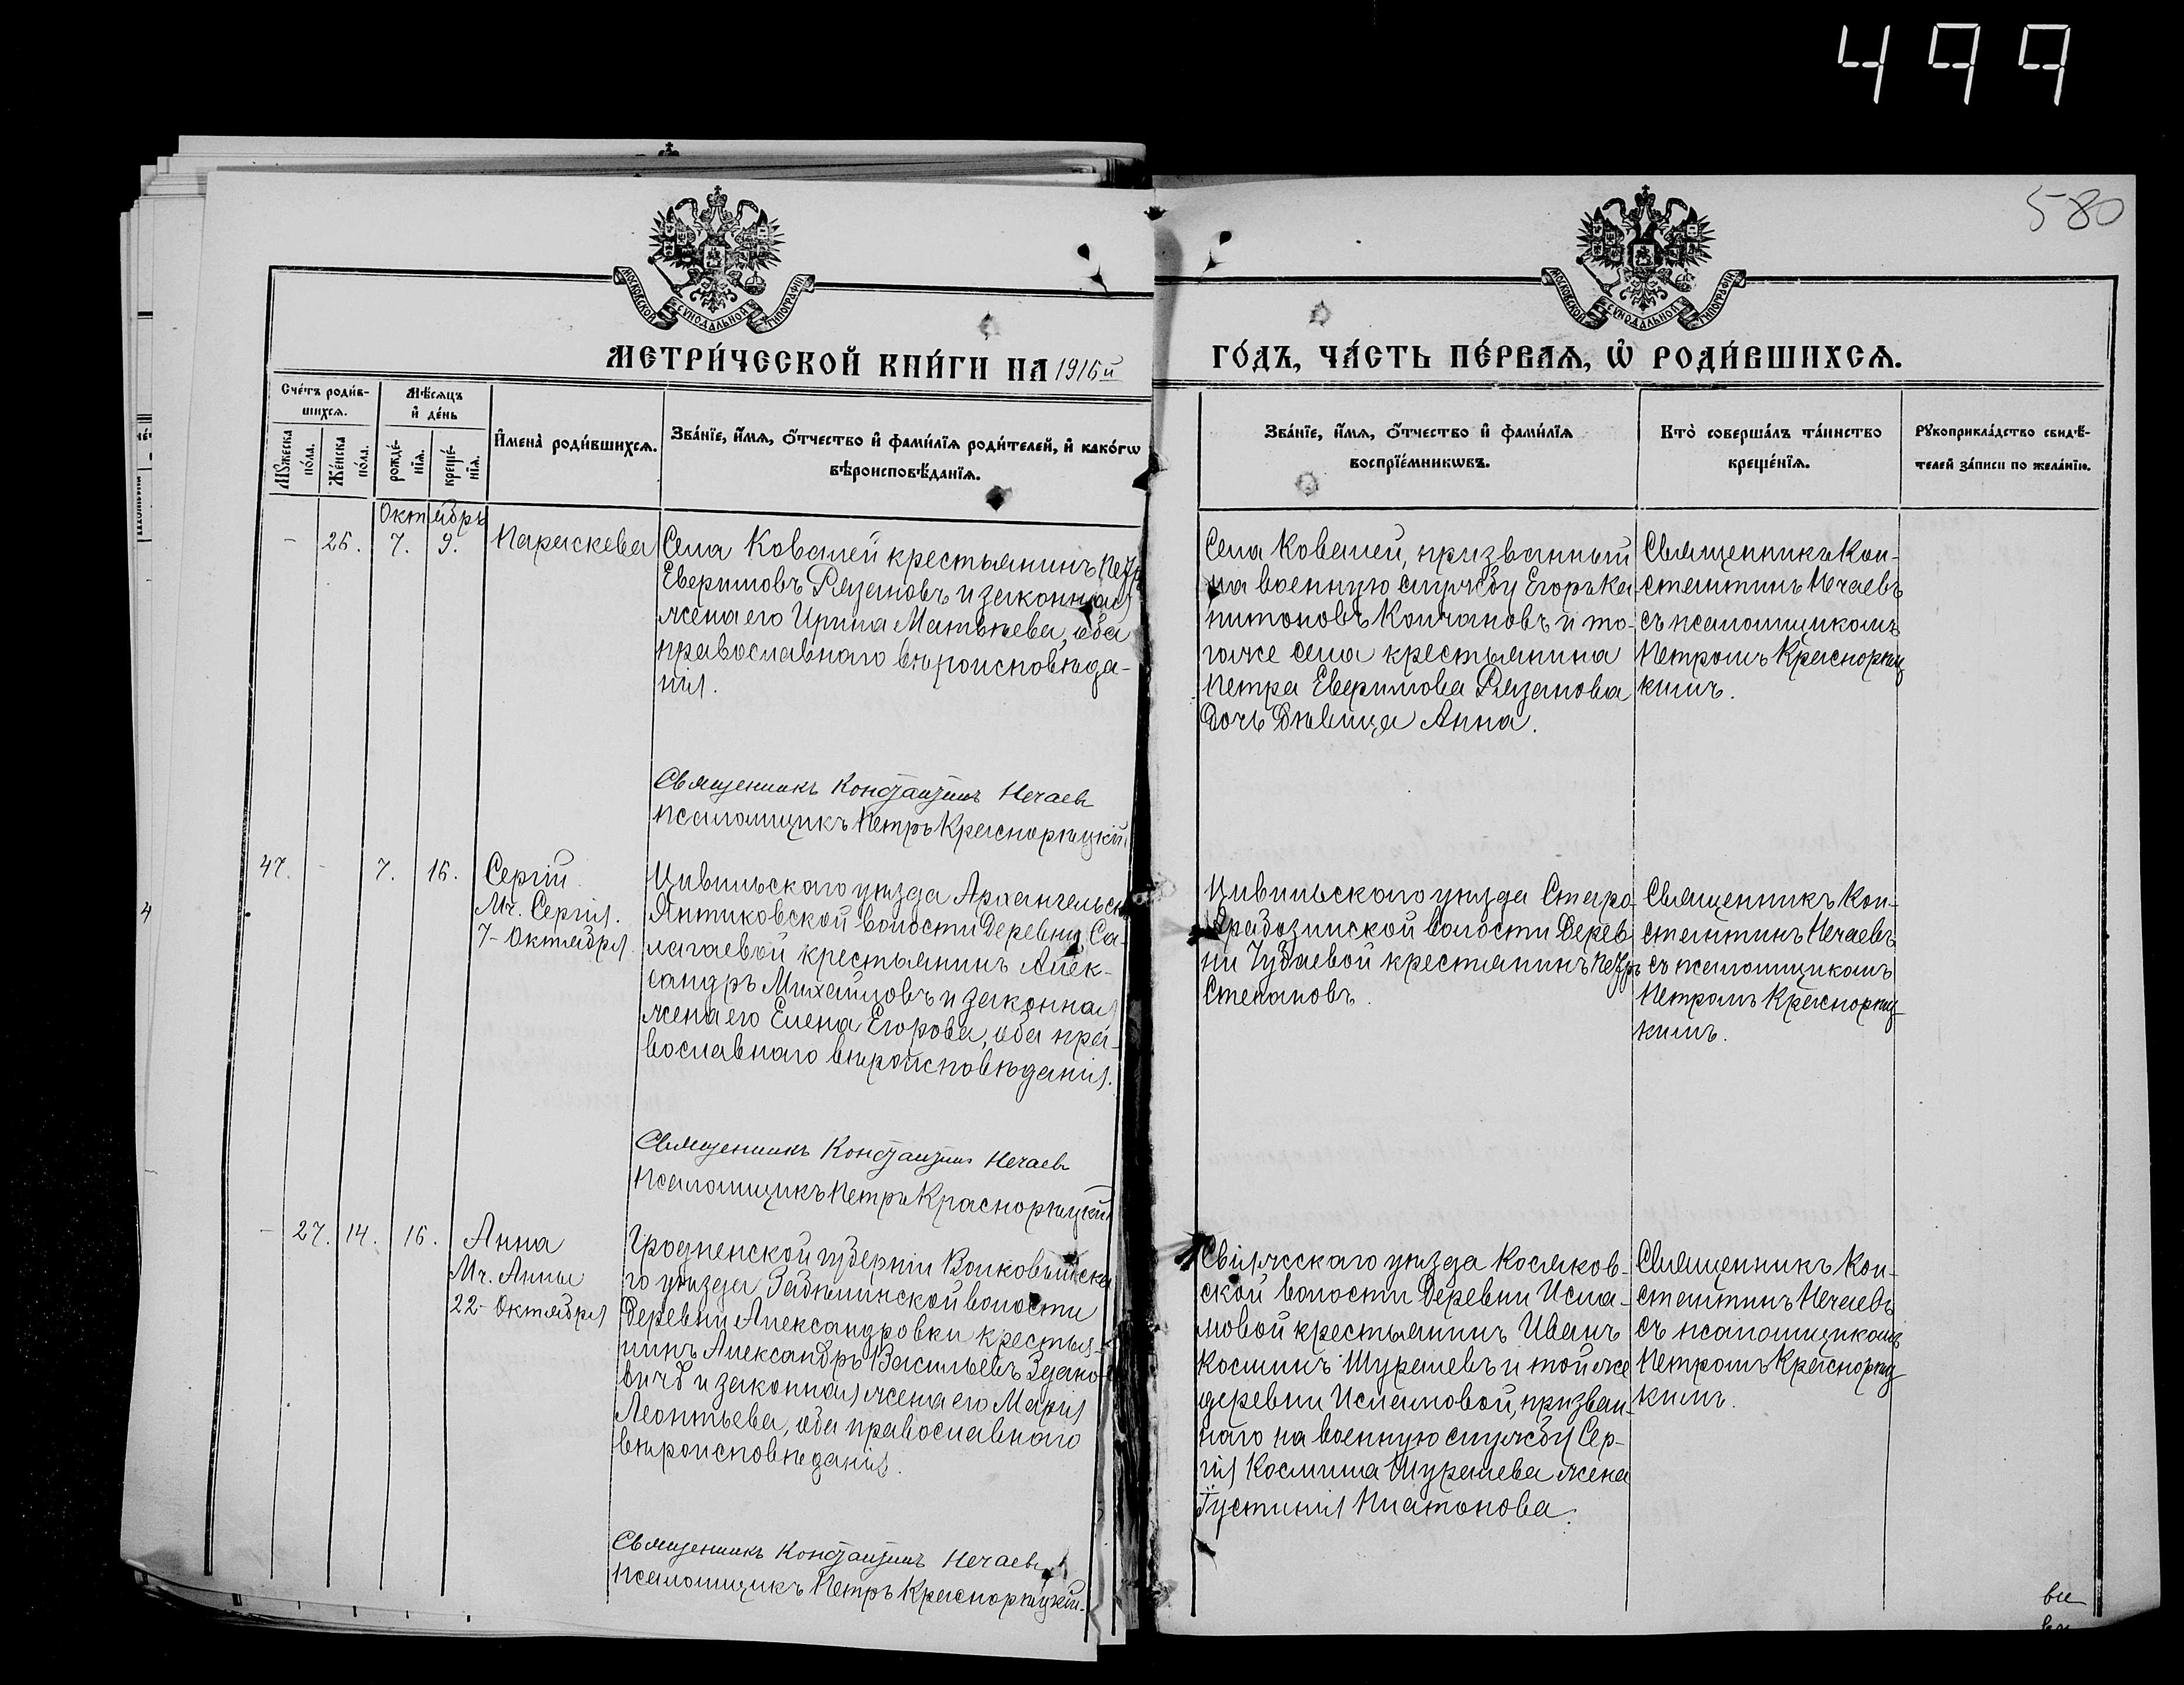 499
580
МОСКОВСКОЙ СѴНОДАЛЬНОЙ ТИПОГРАФІИ
МОСКОВСКОЙ СѴНОДАЛЬНОЙ ТИПОГРАФІИ
МЕТРИ́ЧЕСКОЙ КНИ́ГИ НА 1916й
ГО́ДЪ, ЧА́СТЬ ПЕ́РВАѦ, Ѡ҆ РОДИ́ВШИХСѦ.
Сче́тъ роди́в-
шихсѧ.
Мѣ́сѧцъ
и҆ де́нь
Мꙋ́жеска
по́ла.
Же́нска
по́ла.
рожде́-
нїѧ.
креще́-
нїѧ.
И҆мена̀ роди́вшихсѧ.
Зва́нїе, и҆́мѧ, ѻ҆́тчество и҆ фами́лїѧ роди́телей, и҆ како́гѡ
вѣроисповѣ́данїѧ.
Зва́нїе, и҆́мѧ, ѻ҆́тчество и҆ фами́лїѧ
воспрїе́мникѡвъ.
Кто̀ соверша́лъ та́инство
креще́нїѧ.
Рꙋкоприкла́дство свидѣ́-
телей за́писи по жела́нїю.
Октябрь
- 26. 7. 9. Параскева
Села Ковалей крестьянинъ Петръ
Евфимовъ Рязановъ и законная
жена его Ирина Матвѣева, оба
православнаго вѣроисповѣда-
нія.
Священникъ Константинъ Нечаевъ
Псаломщикъ Петръ Краснорѣцкій
Села Ковалей, призванный
на военную службу Егоръ Ка-
питоновъ Колчановъ и то-
гоже села крестьянина
Петра Евфимова Рязанова
дочь дѣвица Анна.
Священникъ Кон-
стантинъ Нечаевъ
съ псаломщикомъ
Петромъ Краснорѣц
кимъ.
47. - 7. 16. Сергій
Мч. Сергія.
7- Октября
Цивильскаго уѣзда Архангельско
Янтиковской волости деревни Са-
лагаевой крестьянинъ Алек-
сандръ Михайловъ и законная
жена его Елена Егорова, оба пра-
вославнаго вѣроисповѣданія.
Священникъ Константинъ Нечаевъ
Псаломщикъ Петръ Краснорѣцкій
Цивильскаго уѣзда Старо-
волости Дерев-
ни Чубаевой крестянинъ Петръ
Степановъ.
Священникъ Кон-
стантинъ Нечаевъ
съ псаломщикомъ
Петромъ Краснорѣц-
кимъ.
- 27. 14. 16. Анна
Мч. Анны
22- Октября
Гродненской губерніи Волковыйска
го уѣзда, волости
деревни Александровки крестья-
нинъ Александръ Васильевъ Здано-
вичъ и законная жена его Марія
Леонтьева, оба православнаго
вѣроисповѣданія.
Священникъ Константинъ Нечаевъ
Псаломщикъ Петръ Краснорѣцкій.
Свіяжскаго уѣзда Косяков-
ской волости деревни Исла-
мовой крестьянинъ Иванъ
Косминъ Шуралевъ и той же
деревни Исламовой, призван-
наго на военную службу Сер-
гія Космина Шуралева жена
Іустинія Платонова.
Священникъ Кон-
стантинъ Нечаевъ
съ псаломщикомъ
Петромъ Краснорѣц
кимъ.